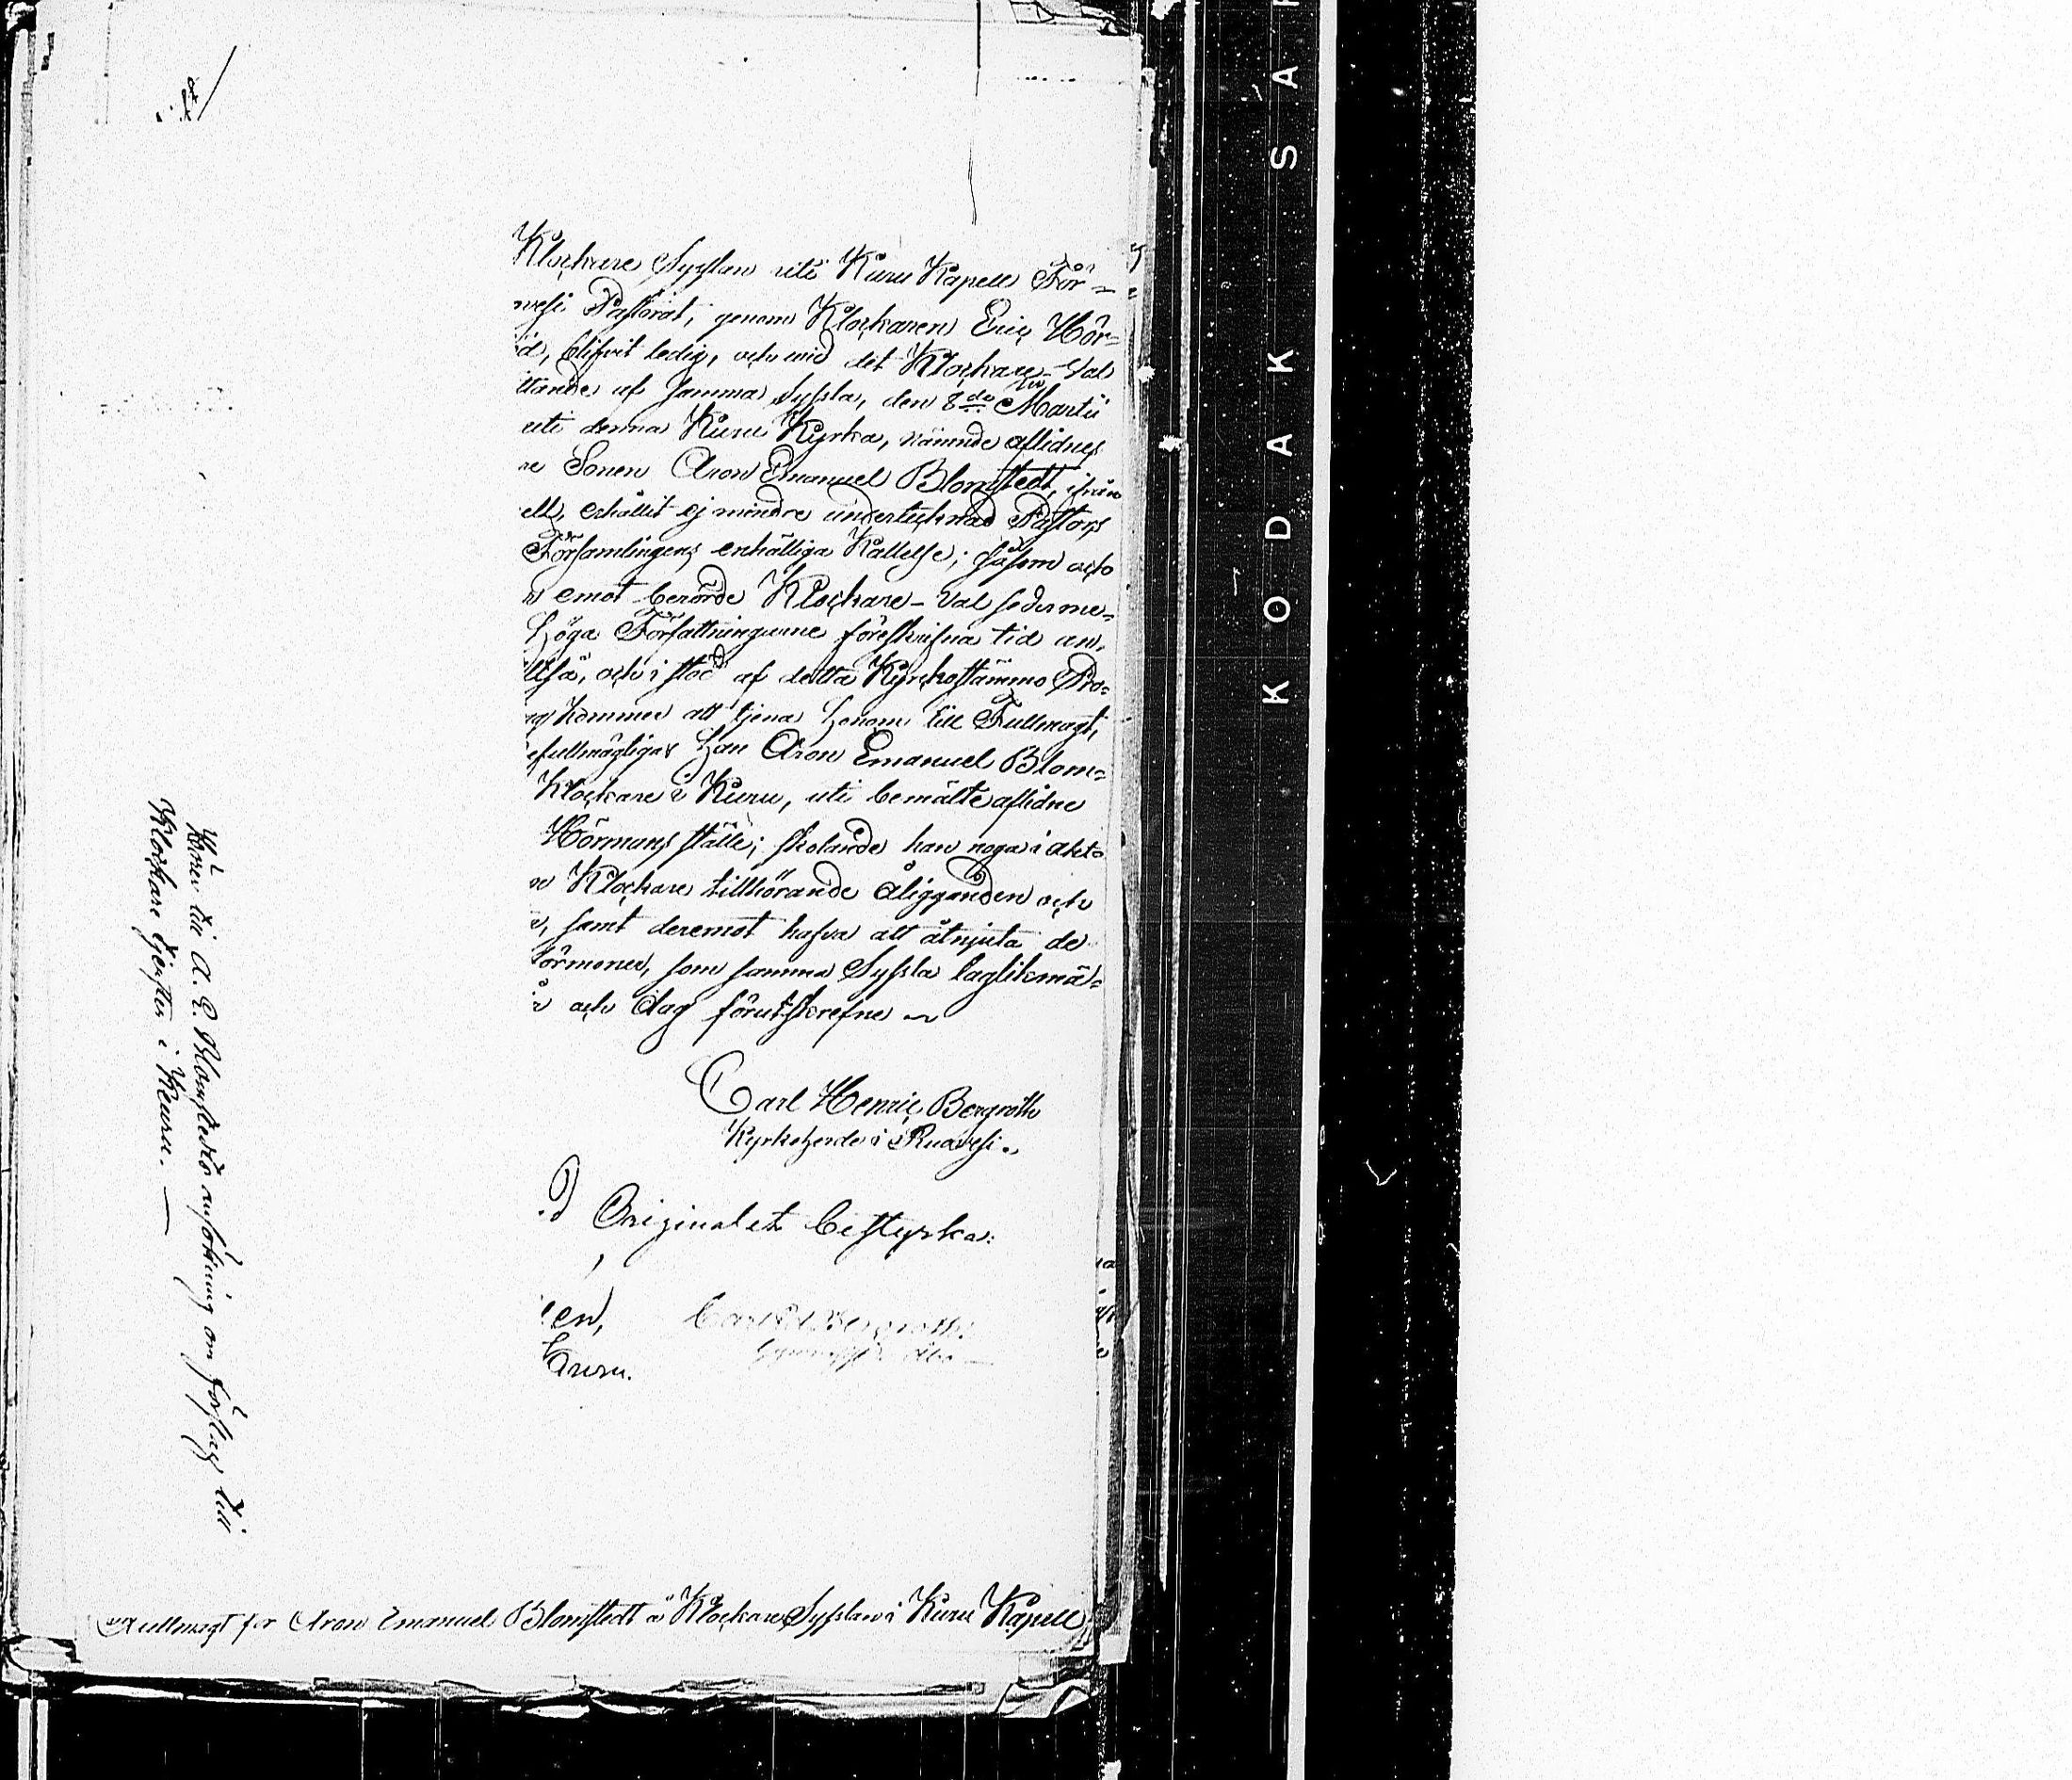 Klockare Sysslan uti Kuru Kapell För-
wesi Pastorat, genom Klockaren Eric Hör-
id, blifvit ledig, och wid det Klockare-Val
ttande af samma Syssla, den 8de Martii
uti denna Kuru Kyrka, nämnde aflidnes
re Sonen Aron Emanuel Blomstedt, ifrån
ell, erhållit ej mindre undertecknad Pastors
Församlingens enhälliga Kallelse; såsom och
emot berörde Klockare-Val sederme-
höga Författningarne föreskrifna tid an,
ltså, och i stöd af detta Kyrkostämmo Pro-
kommer att tjena honom till Fullmagt,
efullmägtigas han Aron Emanuel Blom-
Klockare i Kuru, uti bemälte aflidne
Hörmans ställe; skolande han noga i akt-
Klockare tillhörande åligganden och
samt deremot hafva att åtnjuta de
förmoner, som samma Syssla lagliknä-
och dag förutskrefne
Carl Henric Bergroth
Kyrkoherde i Ruovesi.
Originalet bestyrka:
en, Carl Bergroth
Kuru.
Hörer till A. E. Blomstedts ansökning om förslag till
Klockare tjensten i Kuru. —
Fullmagt för Aron Emanuel Blomstedt å Klockare Sysslan i Kuru Kapell
KODAK SA